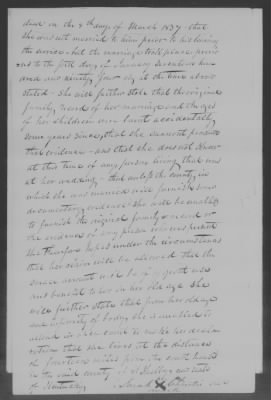 died on the 8th day of March 1837 that
she was not married to him prior to his leaving
the service but the marriage took place previ
ous to the first day of January Seventeen hun
dred and ninety four viz at the time above
stated - She will further state that the original
family record of her marriage and the ages
of her children was burnt accidentally
some years since, that she cannot produce
that evidence - and that she does not know
at this time of any person living that was
at her wedding - that unless the county in
which she was married will furnish some
documentary evidence she will be unable
to furnish the original family record or
the evidence of any person who was present
She therefore hopes under the circumstances
that her claim will be allowed that the
same amount will be of great use
and benefit to her in her old age She
will further state that from her old age
and infirmity of body she is unable to
attend in open court to make her decla
ration that she lives at the distance
of fourteen miles from the court house
in the said county of Shelby and state
of Kentucky
Sarah X